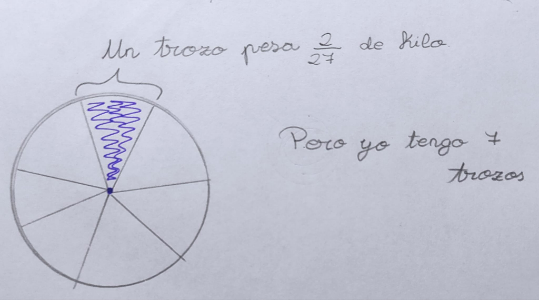 Un trozo pesa 2/27 de kilo
Pero yo tengo 7
trozos